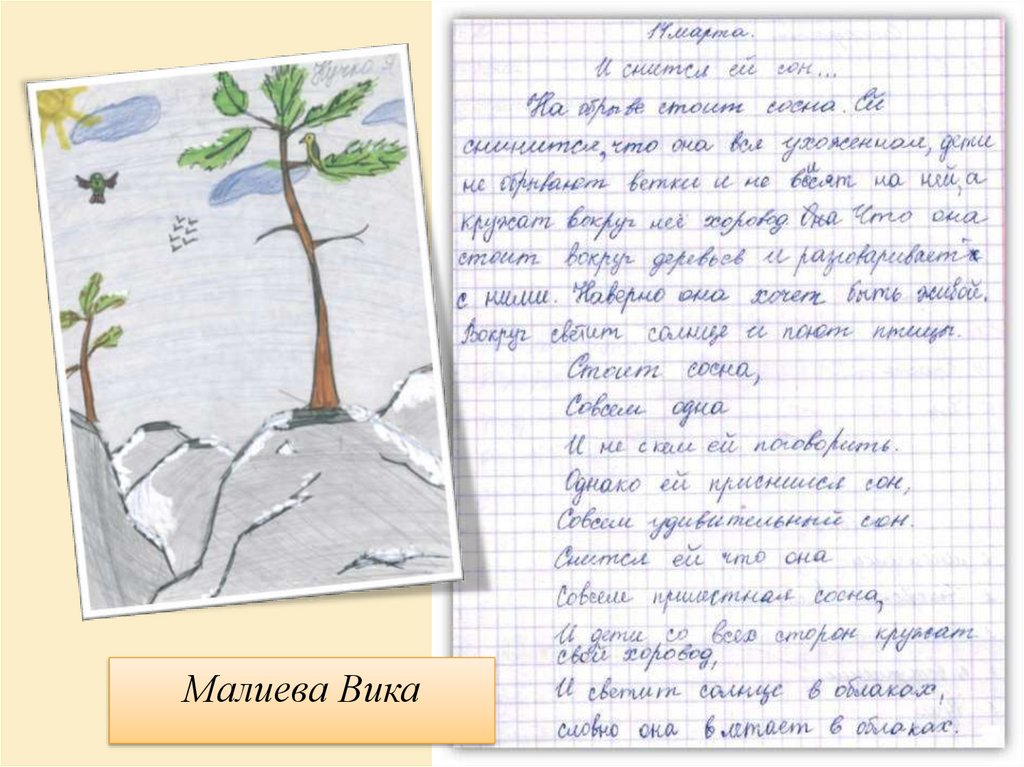 Кучко Я
14 марта.
И снится ей сон...
На обрыве стоит сосна. Ей
снинится, что она вся ухоженная, дети
не обрывают ветки и не восят на ней, а
кружат вокруг неё хоровод. Она Что она
стоит вокруг деревьев и разговаривает
с ними. Наверно она хочет быть живой.
Вокруг светит солнце и поют птицы.
Стоит сосна,
Совсем одна
И не с кем ей поговорить.
Однако ей приснился сон,
Совсем удивительный сон.
Снится ей что она
Совсем сосна,
И дети со всех сторон кружат
свой хоровод,
И светит солнце в облаках,
словно она влетает в облаках.
Малиева Вика